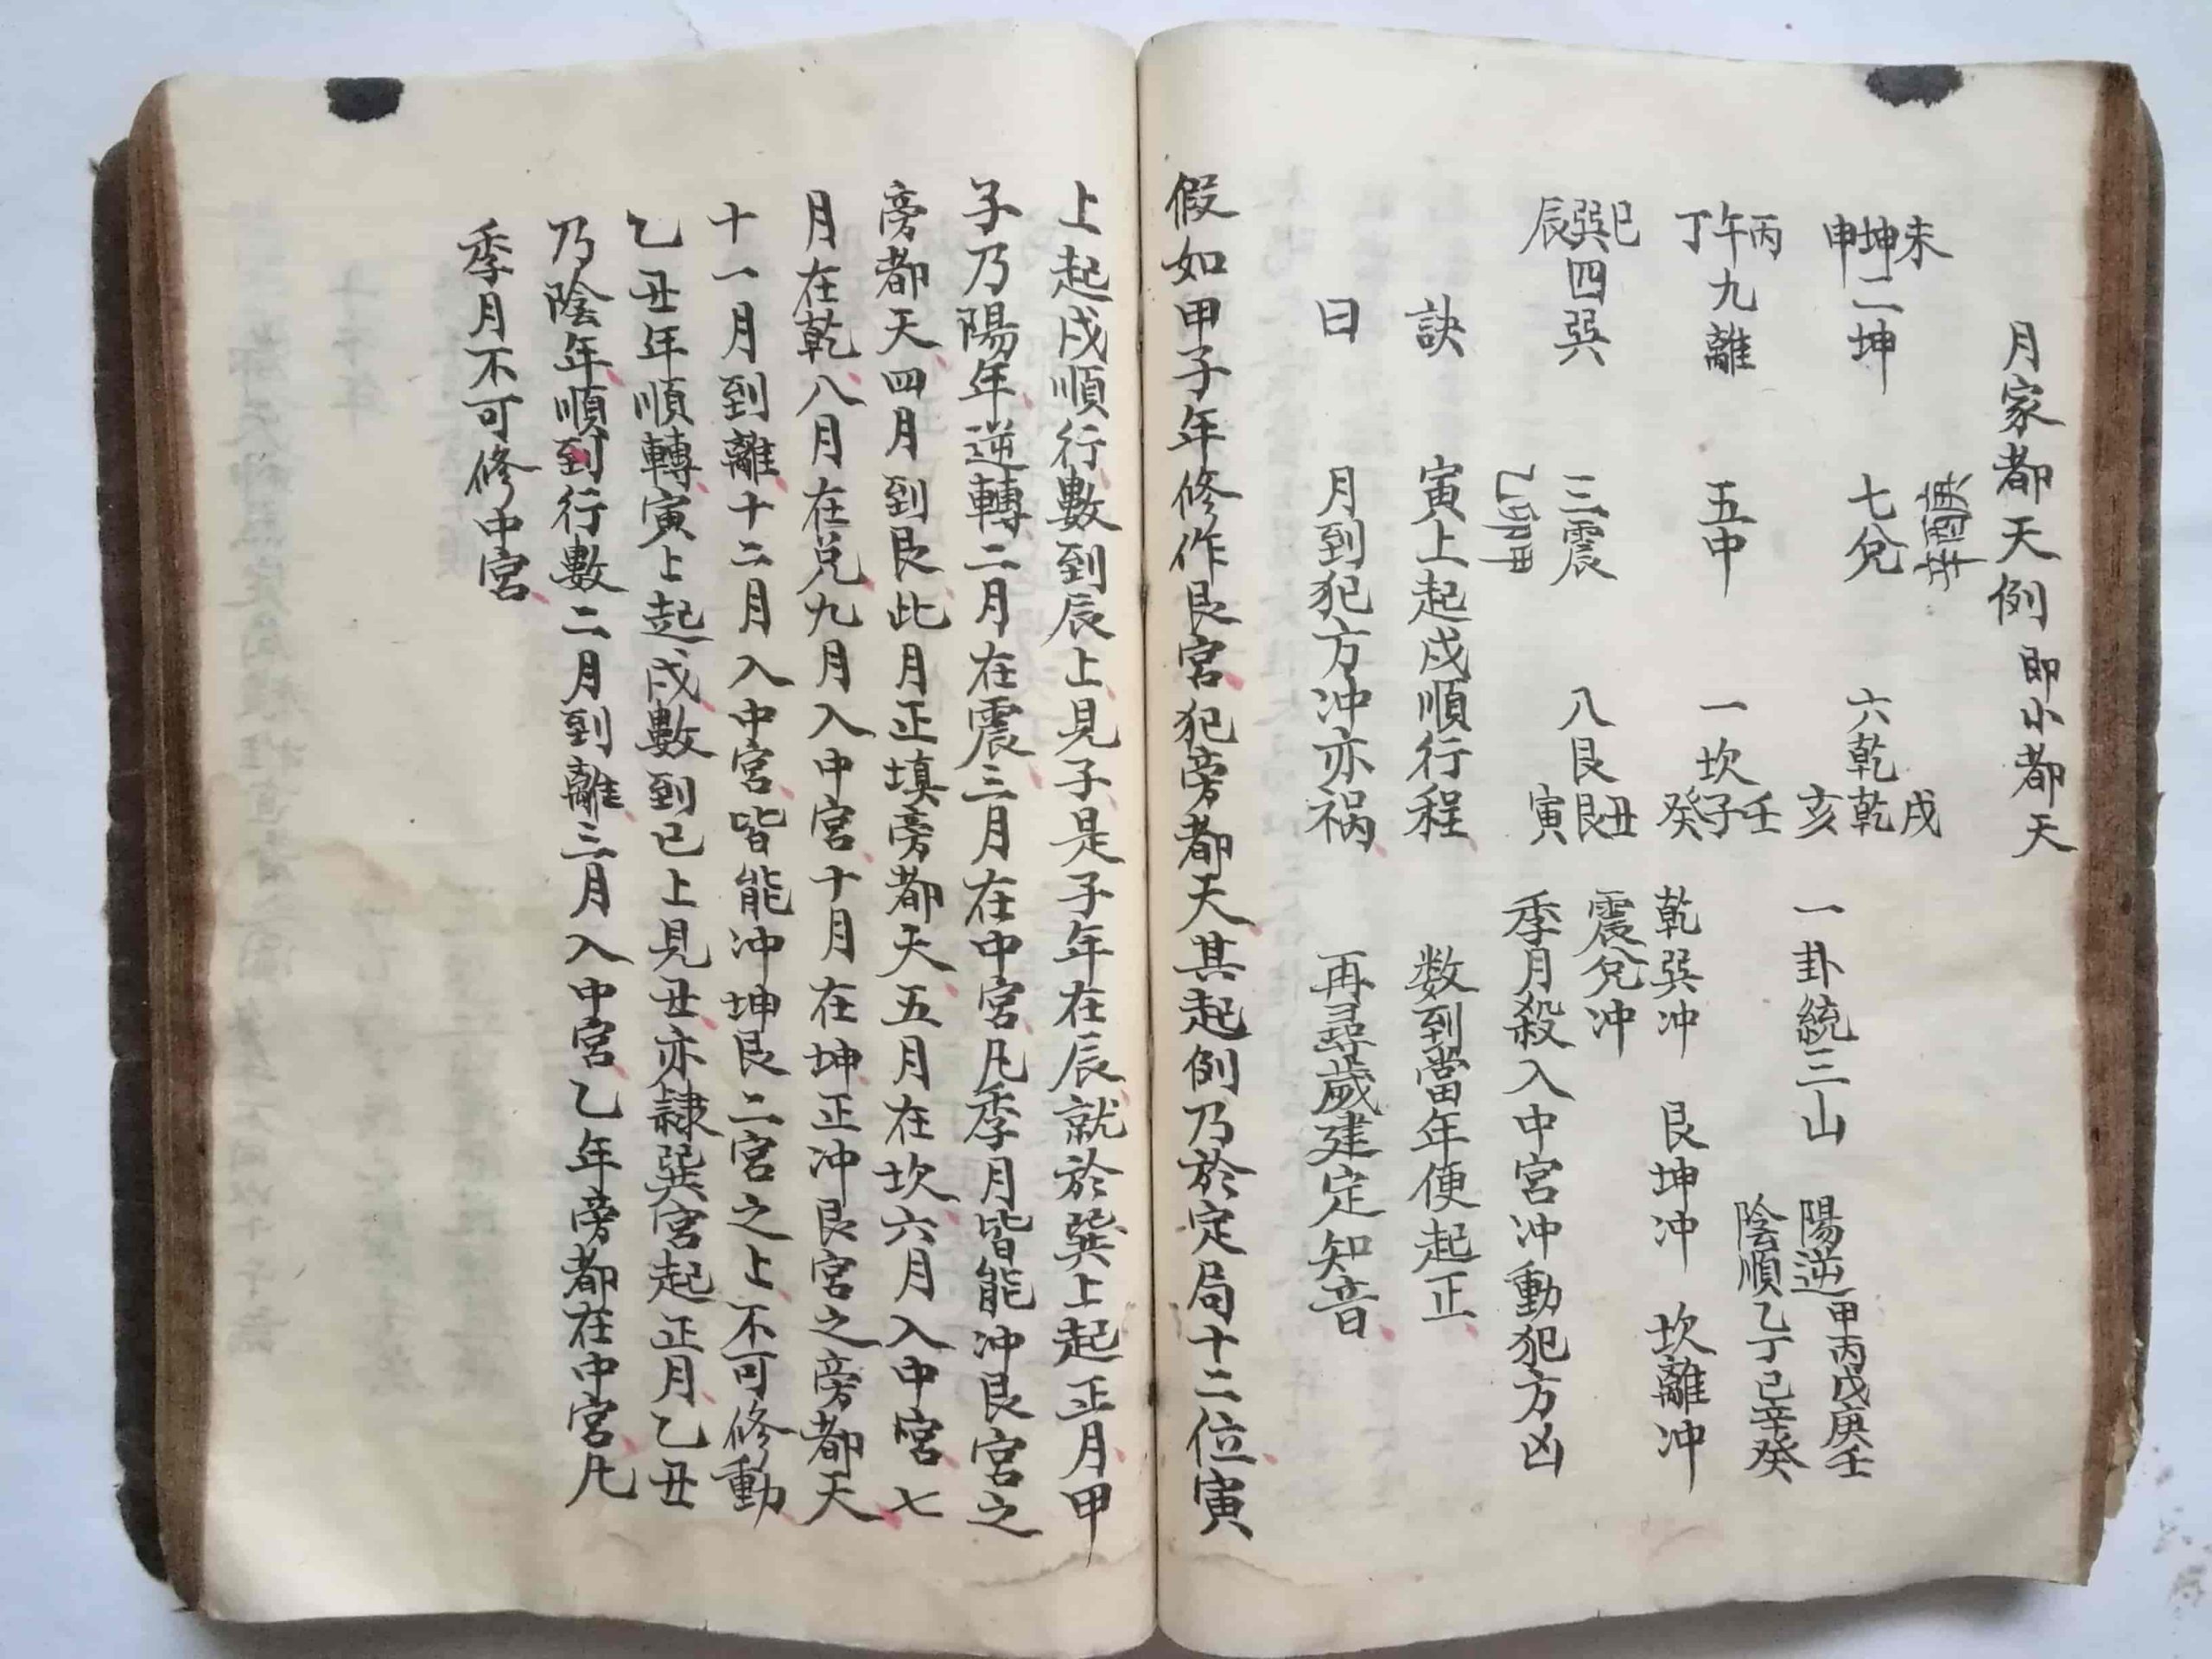 月家都天例 即小都天
未坤申 二坤 七兌 庚酉辛 六乾 戌乾亥
丙午丁 九離 五中 一坎 壬子癸
巳巽辰 四巽 三震 八艮 丑艮寅
一卦統三山 陽逆甲丙戊庚壬
陰順乙丁己辛癸
乾巽冲 艮坤冲 坎離冲
震兌冲
季月殺入中宮冲動犯方凶
訣 寅上起戌順行程 数到當年便起正
曰 月到犯方冲亦祸 再尋歲建定知音
假如甲子年修作艮宮犯旁都天其起例乃於定局十二位寅
上起戌順行數到辰上見子是子年在辰就於巽上起正月甲
子乃陽年逆轉二月在震三月在中宮凡季月皆能冲艮宮之
旁都天四月到艮此月正填旁都天五月在坎六月入中宮七
月在乾八月在兌九月入中宮十月在坤正冲艮宮之旁都天
十一月到離十二月入中宮皆能冲坤艮二宮之上不可修動
乙丑年順轉寅上起戌數到巳上見丑亦隷巽宮起正月乙丑
乃陰年順到行數二月到離三月入中宮乙年旁都在中宮凡
季月不可修中宮